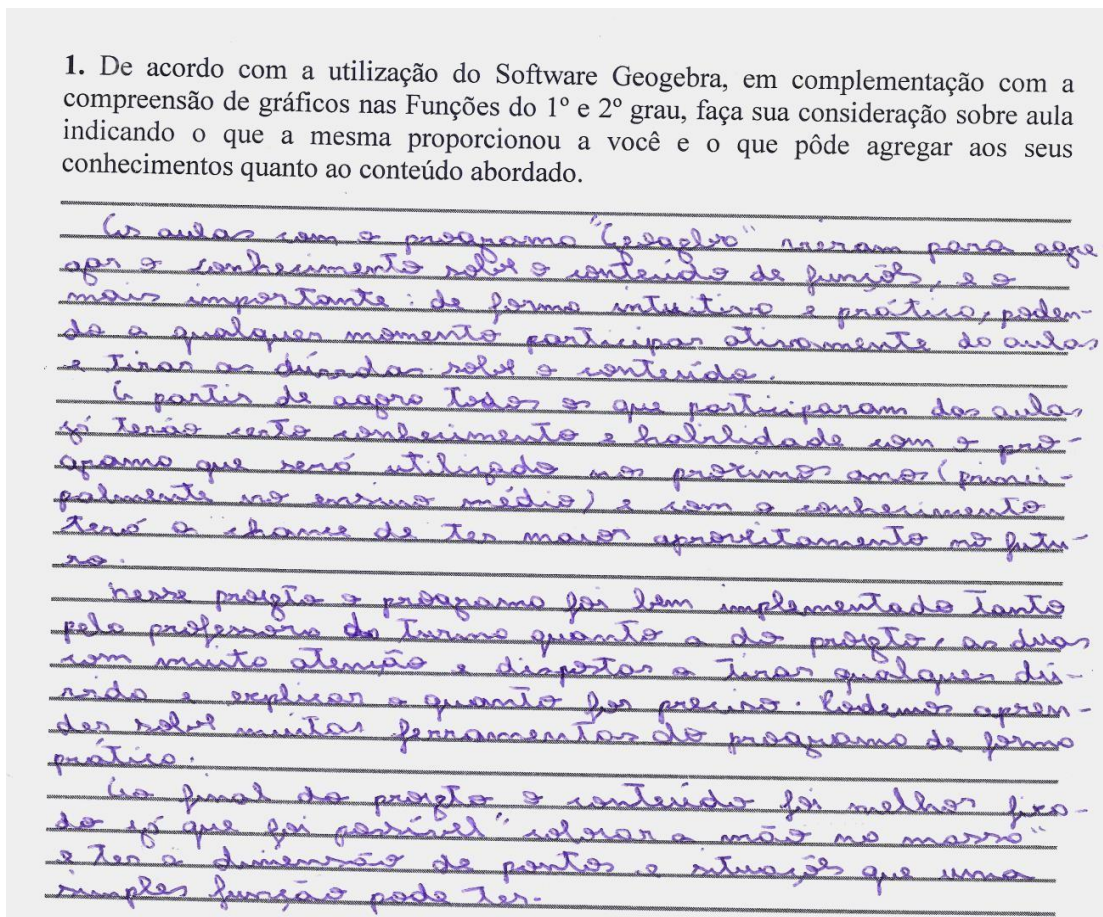 1. De acordo com a utilização do Software Geogebra, em complementação com a
compreensão de gráficos nas Funções do 1º e 2º grau, faça sua consideração sobre aula
indicando o que a mesma proporcionou a você e o que pôde agregar aos seus
conhecimentos quanto ao conteúdo abordado.
As aulas com o programa "Geogebra" vieram para agre
gar o conhecimento sobre o conteúdo de funções, e o
mais importante: de forma intuitiva e prática, poden-
do a qualquer momento participar ativamente da aulas
e tirar as dúvidas sobre o conteúdo.
A partir de agora todos os que participaram das aulas
já terão certo conhecimento e habilidade com o pro-
grama que será utilizado nos próximos anos (princi-
palmente no ensino médio) e com o conhecimento
terá a chance de ter maior aproveitamento no futu-
ro.
Nesse projeto o programa foi bem implementado tanto
pela professora da turma quanto a do projeto, as duas
com muita atenção e dispostas a tirar qualquer dú-
vida e explicar o quanto for preciso. Podemos apren-
der sobre muitas ferramentas do programa de forma
prática.
Ao final do projeto o conteúdo foi melhor fixa-
do já que foi possível "colocar a mão na massa"
e ter a dimensão de pontos e situações que uma
simples função pode ter.